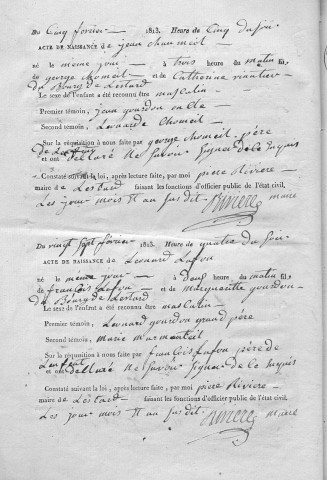 Du Cinq fevrier 1813. Heure de Cinq du soir
ACTE DE NAISSANCE de jean chaumeil
né le meme jour à trois heure du matin fils
de george chomeil et de Catherine
du Bourg de Lestard
Le sexe de l'enfant a été reconnu être masculin
Premier témoin, jean gourdon oncle
Second témoin, Leonarde Chomeil
Sur la réquisition à nous faite par george chomeil père
de L'enfant
et ont declaré ne savoir signer de le requis
Constaté suivant la loi, après lecture faite, par moi piere Riviere
maire de Lestard faisant les fonctions d'officier public de l'état civil.
Les jour mois et an susdit Riviere maire
Du vingt sept fevrier 1813. Heure de quatre du soir
ACTE DE NAISSANCE de Leonard Lafon
né le meme jour à deux heure du matin fils
de françois Lafon et de Marguerithe gourdon
du Bourg de Lestard
Le sexe de l'enfant a été reconnu être masculin
Premier témoin, Leonard gourdon grand père
Second témoin, marie marmonteil
Sur la réquisition à nous faite par françois Lafon père de
L'enfant
et ont declaré ne savoir signer de le requis
Constaté suivant la loi, après lecture faite, par moi piere Riviere
maire de Lestard faisant les fonctions d'officier public de l'état civil.
Les jour mois et an susdit Riviere maire